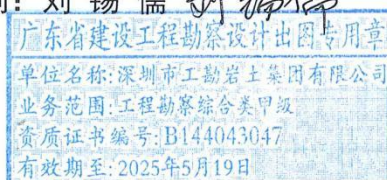 刘锡儒
广东省建设工程勘察设计出图专用章
单位名称:深圳市工勘岩土集团有限公司
业务范围:工程勘察综合类甲级
资质证书编号:B144043047
有效期至:2025年5月19日